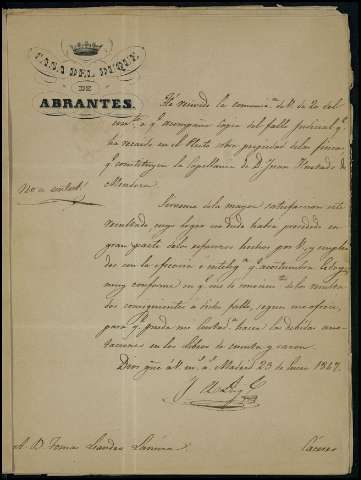 CASA DEL DUQUE
DE
ABRANTES.
He recivido la comunicn. de V. de 20 del
corrte. a q. acompaña copia del fallo judicial q.
ha recaido en el Pleito sobre propiedad de las fincas
q. constituyen la Capellania de D. Juan Hurtado de
Mendoza.
Sirveme de la mayor satisfaccion este
resultado cuyo logro sin duda habrá pendido en
gran parte de los esfuerzos hechos por V. y emplea
dos con la eficacia é inteligа. q. acostumbra. Estoy
muy conforme en q. me
consiguientes á dicho fallo, segun me ofrece,
para q. pueda mi hacer las debidas ano-
taciones en los libros de cuenta y razon.
Dios gue. á V. ms. as. Madrid 23 de Enero 1847.
El Duq. e
S. D. Tomas Leandro
Cáceres